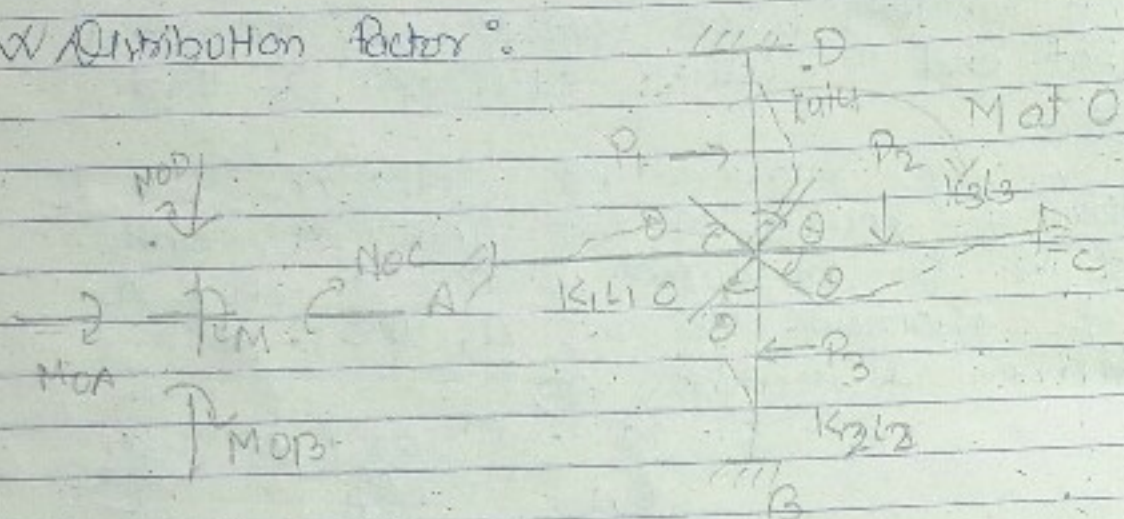 Distribution factor :
D
I4L4
M at O
P1
P2
K3L3
MOD
θ
θ
MOC
A
K1L1 O
θ
C
M
θ
P3
MOA
MOB
K2L2
B